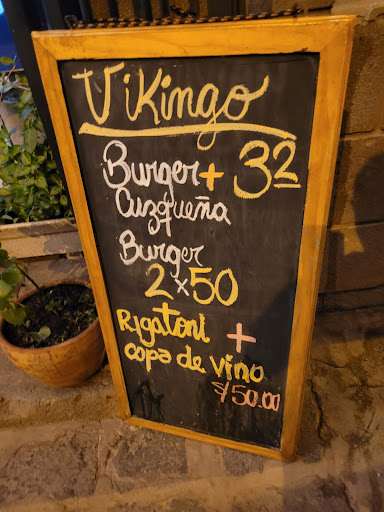 Vikingo
Burger + 32
Cuzqueña
Burger
2x50
Rigatoni +
copa de vino
S/50.00